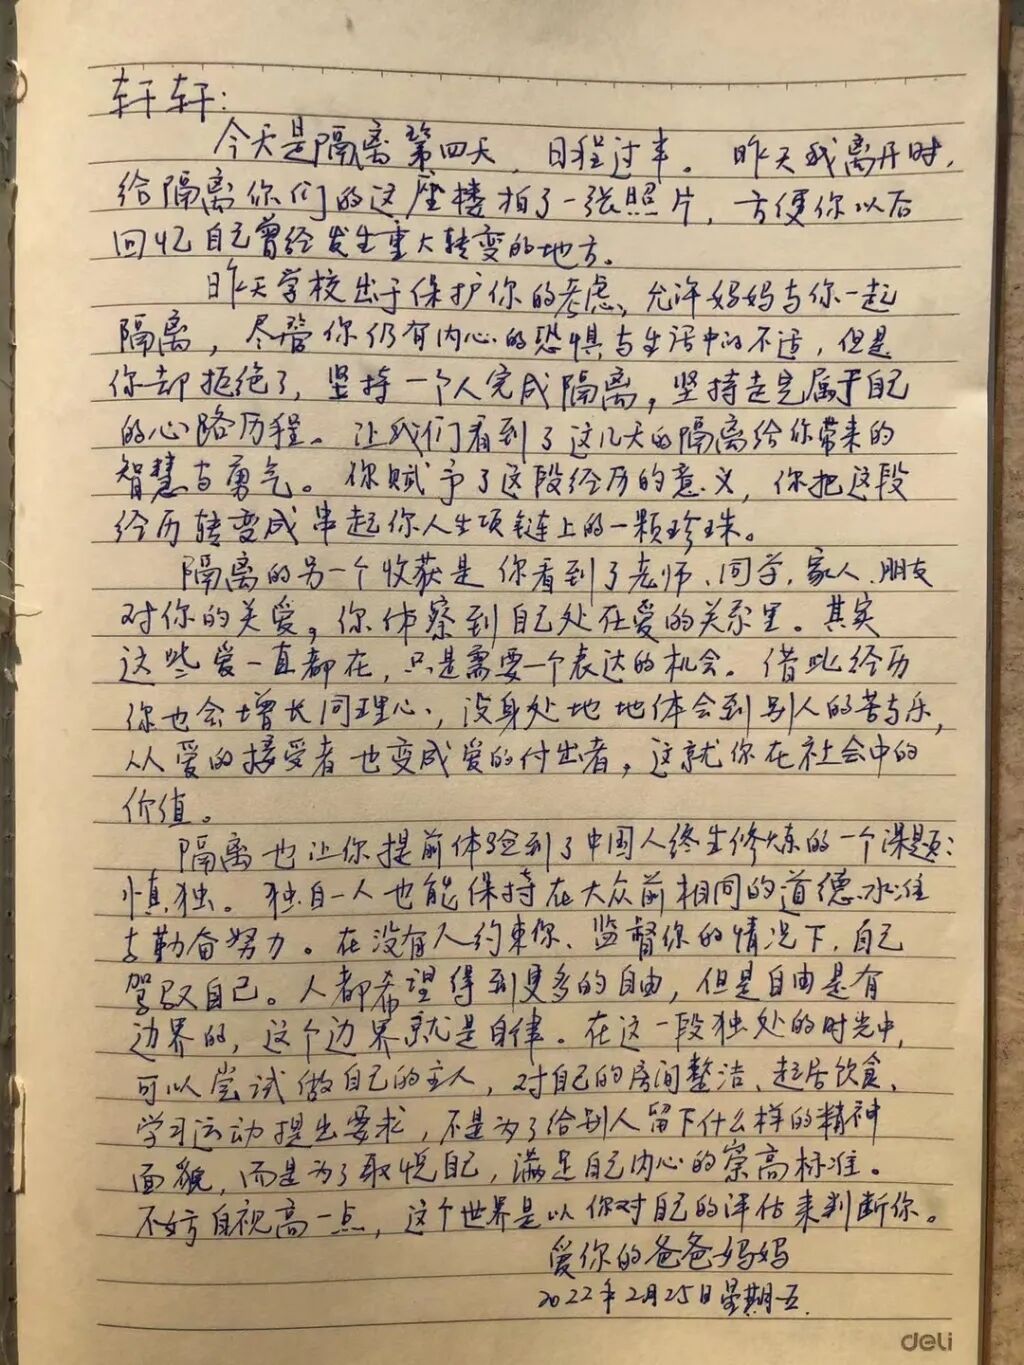 轩轩：
今天是隔离第四天，日程过半。昨天我离开时，
给隔离你们的这座楼拍了一张照片，方便你以后
回忆自己曾经发生重大转变的地方。
昨天学校出于保护你的考虑、允许妈妈与你一起
隔离，尽管你仍有内心的恐惧与生活中的不适，但是
你却拒绝了，坚持一个人完成隔离，坚持走完属于自己
的心路历程。让我们看到了这几天的隔离给你带来的
智慧与勇气。你赋予了这段经历的意义，你把这段
经历转变成串起你人生项链上的一颗珍珠。
隔离的另一个收获是你看到了老师、同学、家人、朋友
对你的关爱，你体察到自己处在爱的关系里。其实
这些爱一直都在，只是需要一个表达的机会。借此经历
你也会增长同理心，设身处地地体会到别人的苦与乐，
从爱的接受者也变成爱的付出者，这就你在社会中的
价值。
隔离也让你提前体验到了中国人终生修炼的一个课题：
慎独。独自一人也能保持在大众前相同的道德水准
与勤奋努力。在没有人约束你、监督你的情况下，自己
驾驭自己。人都希望得到更多的自由，但是自由是有
边界的，这个边界就是自律。在这一段独处的时光中，
可以尝试做自己的主人，对自己的房间整洁、起居饮食、
学习运动提出要求，不是为了给别人留下什么样的精神
面貌，而是为了取悦自己，满足自己内心的崇高标准。
不妨自视高一点，这个世界是以你对自己的评估来判断你。
爱你的爸爸妈妈
2022年2月25日星期五.
deli